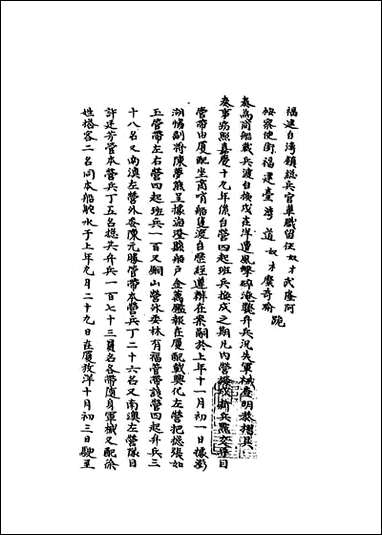 福建台灣鎮總兵官革職留任奴才武隆阿
跪
按察使銜福建臺灣道奴才糜奇瑜
奏為商船載兵渡台換戍在洋遭風擊碎淹斃弁兵沉失軍械查明恭摺具
奏事竊照嘉慶十九年係台營四起班兵換戍之期凡內營撥戍新兵點交登目
營帶由廈配坐商哨船隻渡台歷經遵辦在案嗣於上年十一月初一日據澎
湖協副將陳夢熊呈據海澄縣船戶金萬鑑報在廈配載興化左營把總張如
玉管帶左右營四起班兵一百又銅山營外委林有福管帶該營四起弁兵三
十八名又南澳左營外委陳元勝管帶本營兵丁二十六名又南澳左營隊目
許廷芳管本營兵丁五名總共弁兵一百七十三員名各帶隨身軍械又配塗
姓搭客二名同本船舵水于上年九月二十九日在廈放洋十月初三日駛至